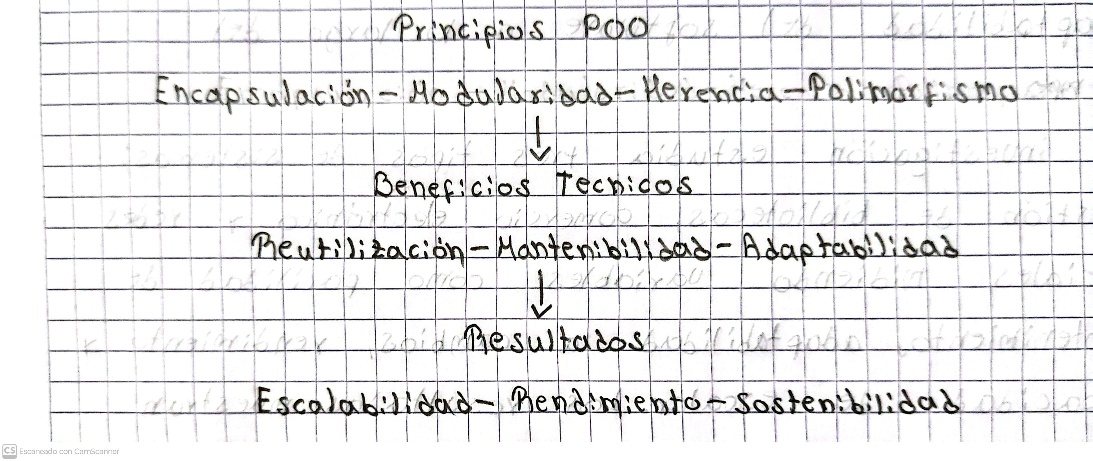 Principios POO
Encapsulación - Modularidad - Herencia - Polimorfismo
↓
Beneficios Tecnicos
Reutilización - Mantenibilidad - Adaptabilidad
↓
Resultados
Escalabilidad - Rendimiento - Sostenibilidad
CS Escaneado con CamScanner